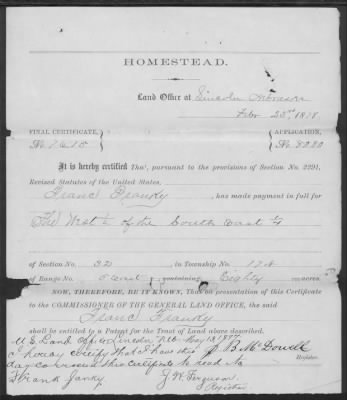 HOMESTEAD.
Land Office at Lincoln Nebraska
Feby 23rd 1878
FINAL CERTIFICATE, APPLICATION,
No. 7615 No. 8020
It is hereby certified That, pursuant to the provisions of Section No. 2291,
Revised Statutes of the United States,
has made payment in full for
The West ½ of the South East ¼
of Section No. 32 in Township No. 17 N
of Range No. 5 East containing Eighty acres.
NOW, THEREFORE, BE IT KNOWN, That on presentation of this Certificate
to the COMMISSIONER OF THE GENERAL LAND OFFICE, the said
shall be entitled to a Patent for the Tract of Land above described.
U.S. Land Office Lincoln Neb May 13 J B McDowell
I hereby certify that I have this Register.
day corrected this certificate to read to
Frank Janky J W Ferguson
Register